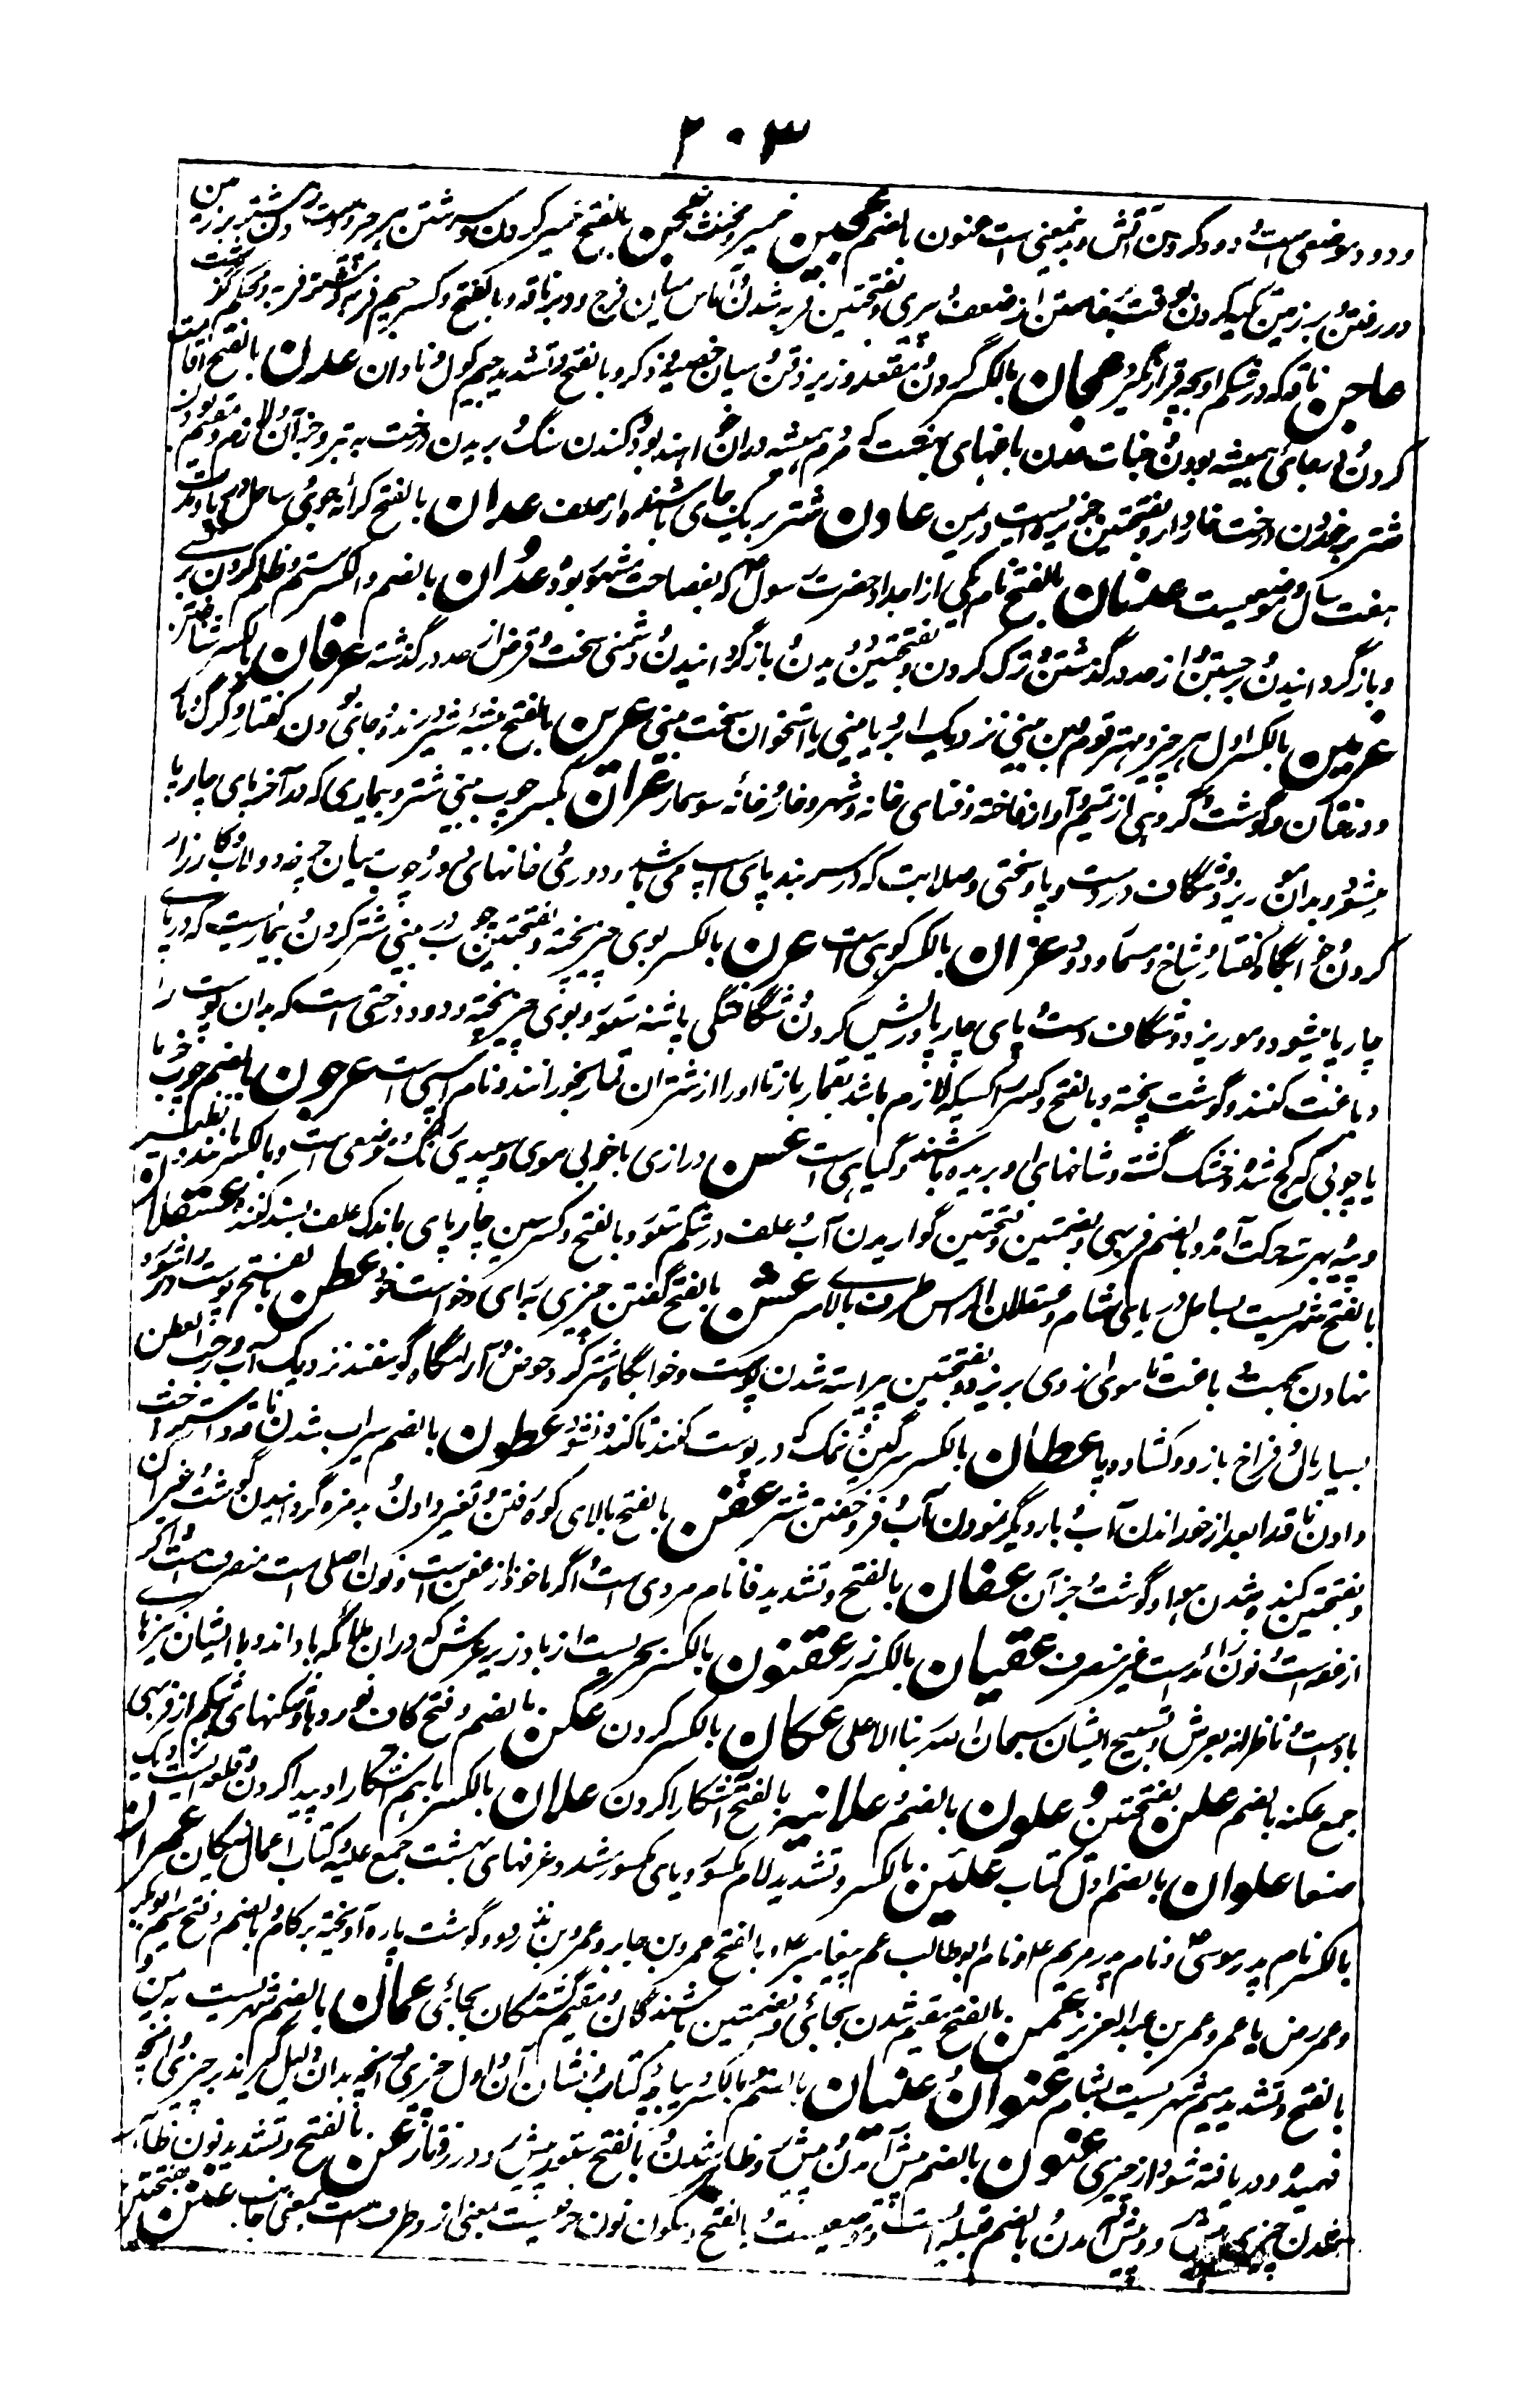 ۲۰۳
و دود و موضعی است و دود کردن آتش و بدین معنی است عثون بالضم عجین خمیر و مخنث عجن بالفتح خمیر کردن و سرشتن هر چیز و دست شتر بر زمین
در رفتن و بر زمین تکیه کردن بوقت برخاستن از ضعف و پیری و بفتحتین فربه شدن و آماس میان فرج و دبر ناقه و بالفتح و کسر جیم فربه و شتر فربه و محکم گوشت
عاجن ناقه که در شکم او بچه قرار نگیرد عجان بالکسر گردن و مقعد و زیر ذقن و میان خصیه و ذکر و بالفتح و تشدید جیم گول و نادان عدن بالفتح اقامت
کردن بجائی و همیشه بودن و جنات عدن باغهای بهشت که مردم همیشه دران خواهند بود و کندن سنگ و بریدن درخت به تبر و جز آن و لازم و مقیم بودن
شتر بخوردن درخت خاردار و بفتحتین جزیره است در یمن عادن شتر بر یک جای باشنده از علف عدان بالفتح کرانه جوی و ساحل دریا و مدت
هفت سال و موضعیست عدنان بالفتح نام یکی از اجداد حضرت رسول صلعم که بفصاحت مشهور بود عدوان بالضم و الکسر ستم و ظلم کردن بر کسی
و بازگردانیدن و جستن و از حد در گذشتن و ترک کردن و بفتحتین دویدن و بازگردانیدن و دشمنی سخت و قرض از حد در گذشته عرفان بالکسر شناختن
عرنین بالکسر اول هر چیز و مهتر قوم و بن بینی نزدیک ابرو یا بینی یا استخوان سخت بینی عرین بالفتح بیشهٔ شیر و درنده و جائی بودن کفتار و گرگ و مار
و درختان و گوشت و گروهی از تمیم و آواز فاخته و فنای خانه و شهر و خار و خانهٔ سوسمار عران بکسر چوب بینی شتر و بیماری که در آخر پای چارپا
میشود و بدان مو ریزد و شگاف در دست و پا و سختی و صلابت که در سر بند پای اسپ می باشد و دوری خانهای و چوب میان چرخه دولاب و کارزار
کردن و خوابگاه کفتار و شاخ و مسمار و دود عران بالکسر کوهی است عرن بالکسر بوی چیز پخته و بفتحتین چوب در بینی شتر کردن و بیماریست که در پای
چارپا میشود و مو ریزد و شگاف دست و پای چارپا و ریش کردن و شگافتگی پاشنه ستور و بوی چیز پخته و دود و درختی است که بدان پوست را
دباغت کنند و گوشت پخته و بالفتح و کسر را کسیکه لازم باشد بقمارباز تا او را از شتران قمار بخورانند و نام اسپی است عرجون بالضم چوب خرما
یا چوبی که کج شده و خشک گشته و شاخهای او بریده باشند و گیاهی است عسن درازی با خوبی موی و سپیدی رنگ و موضعی است و بالکسر مانند و نظیر
و پیه بهر ت حرکت آمده و بالضم فربهی و بضمتین و بفتحتین گواریدن آب و علف در شکم ستور و بالفتح و کسر سین چارپای که باندک علف بسند کند عسقلان
بالفتح شهریست بساحل دریای شام و عسقلان الراس طرف بالای سر عشن بالفتح گفتن چیزی به رای و خواست خود عطن بالفتح پوست در شوره
نهادن بجهت دباغت تا موی از وی بریزد و بفتحتین پیراسته شدن پوست و خوابگاه شتر گرد حوض و آرامگاه گوسفند نزدیک آب و رحب العطن
بسیار مال و فراخ بازو و کشاده پا عطان بالکسر سرگین و نمک که در پوست کنند تا گنده نشود عطون بالضم سیراب شدن ناقه و آسایش
دادن ناقه را بعد از خوراندن آب و بار دیگر نمودن آب و فرو خفتن شتر عفن بالفتح بالای کوه رفتن و تغیر دادن و بدمزه گردانیدن گوشت و غیر آن
و بفتحتین گنده شدن هوا و گوشت و جز آن عفان بالفتح و تشدید فا نام مردی است و اگر ماخوذ از عفن است و نون اصلی است منصرف است و اگر
از عفه است و نون زائد است غیر منصرف عقیان بالکسر زر عقنون بالکسر بحریست از باد زیر عرش که دران ملائکه باد اند و با ایشان نیزها
باد است و ناظراند بعرش و تسبیح ایشان سبحان ربنا الاعلی عکان بالکسر گردن عکن بالضم و فتح کاف نورده ها و شکنهای شکم از فربهی
جمع عکنه بالضم علن بفتحتین و علون بالضم و علانیه بالفتح آشکارا کردن علان بالکسر باهم آشکارا و پیدا کردن و قلعه است نزدیک
صنعا علوان بالضم اول کتاب علیین بالکسر و تشدید لام مکسور و یای مکسور مشدد غرفهای بهشت جمع علیه و کتاب اعمال نیکان عمران
بالکسر نام پدر موسی ع و نام پدر مریم ع و نام ابوطالب عم پیغامبر ع و بالفتح عمرو بن جابر و عمرو بن بدر و گوشت پاره آویخته بر کام و بالضم و فتح میم ابوبکر
و عمر رض یا عمر و عمر بن عبد العزیز عمن بالفتح مقیم شدن بجائی و بضمتین باشندگان و مقیم گشتگان بجائی عمان بالضم شهریست به یمن و
بالفتح و تشدید میم شهریست بشام عنوان و عنیان بالضم و بالکسر دیباچه کتاب و نشان آن و اول چیزی و آنچه بدان دلیل گیرند بر چیزی و آنچه
فهمیده و دریافته شود از چیزی عنون بالضم پیش آمدن و پیش و ظاهر شدن و بالفتح ستور پیش رو در رفتار عن بالفتح و تشدید نون ظاهر
شدن چیزی پیش و پیش آمدن و بالضم قبیله است و موضعیست و بالفتح و سکون نون حرفیست بمعنی از و طرف است بمعنی جانب عنن بفتحتین